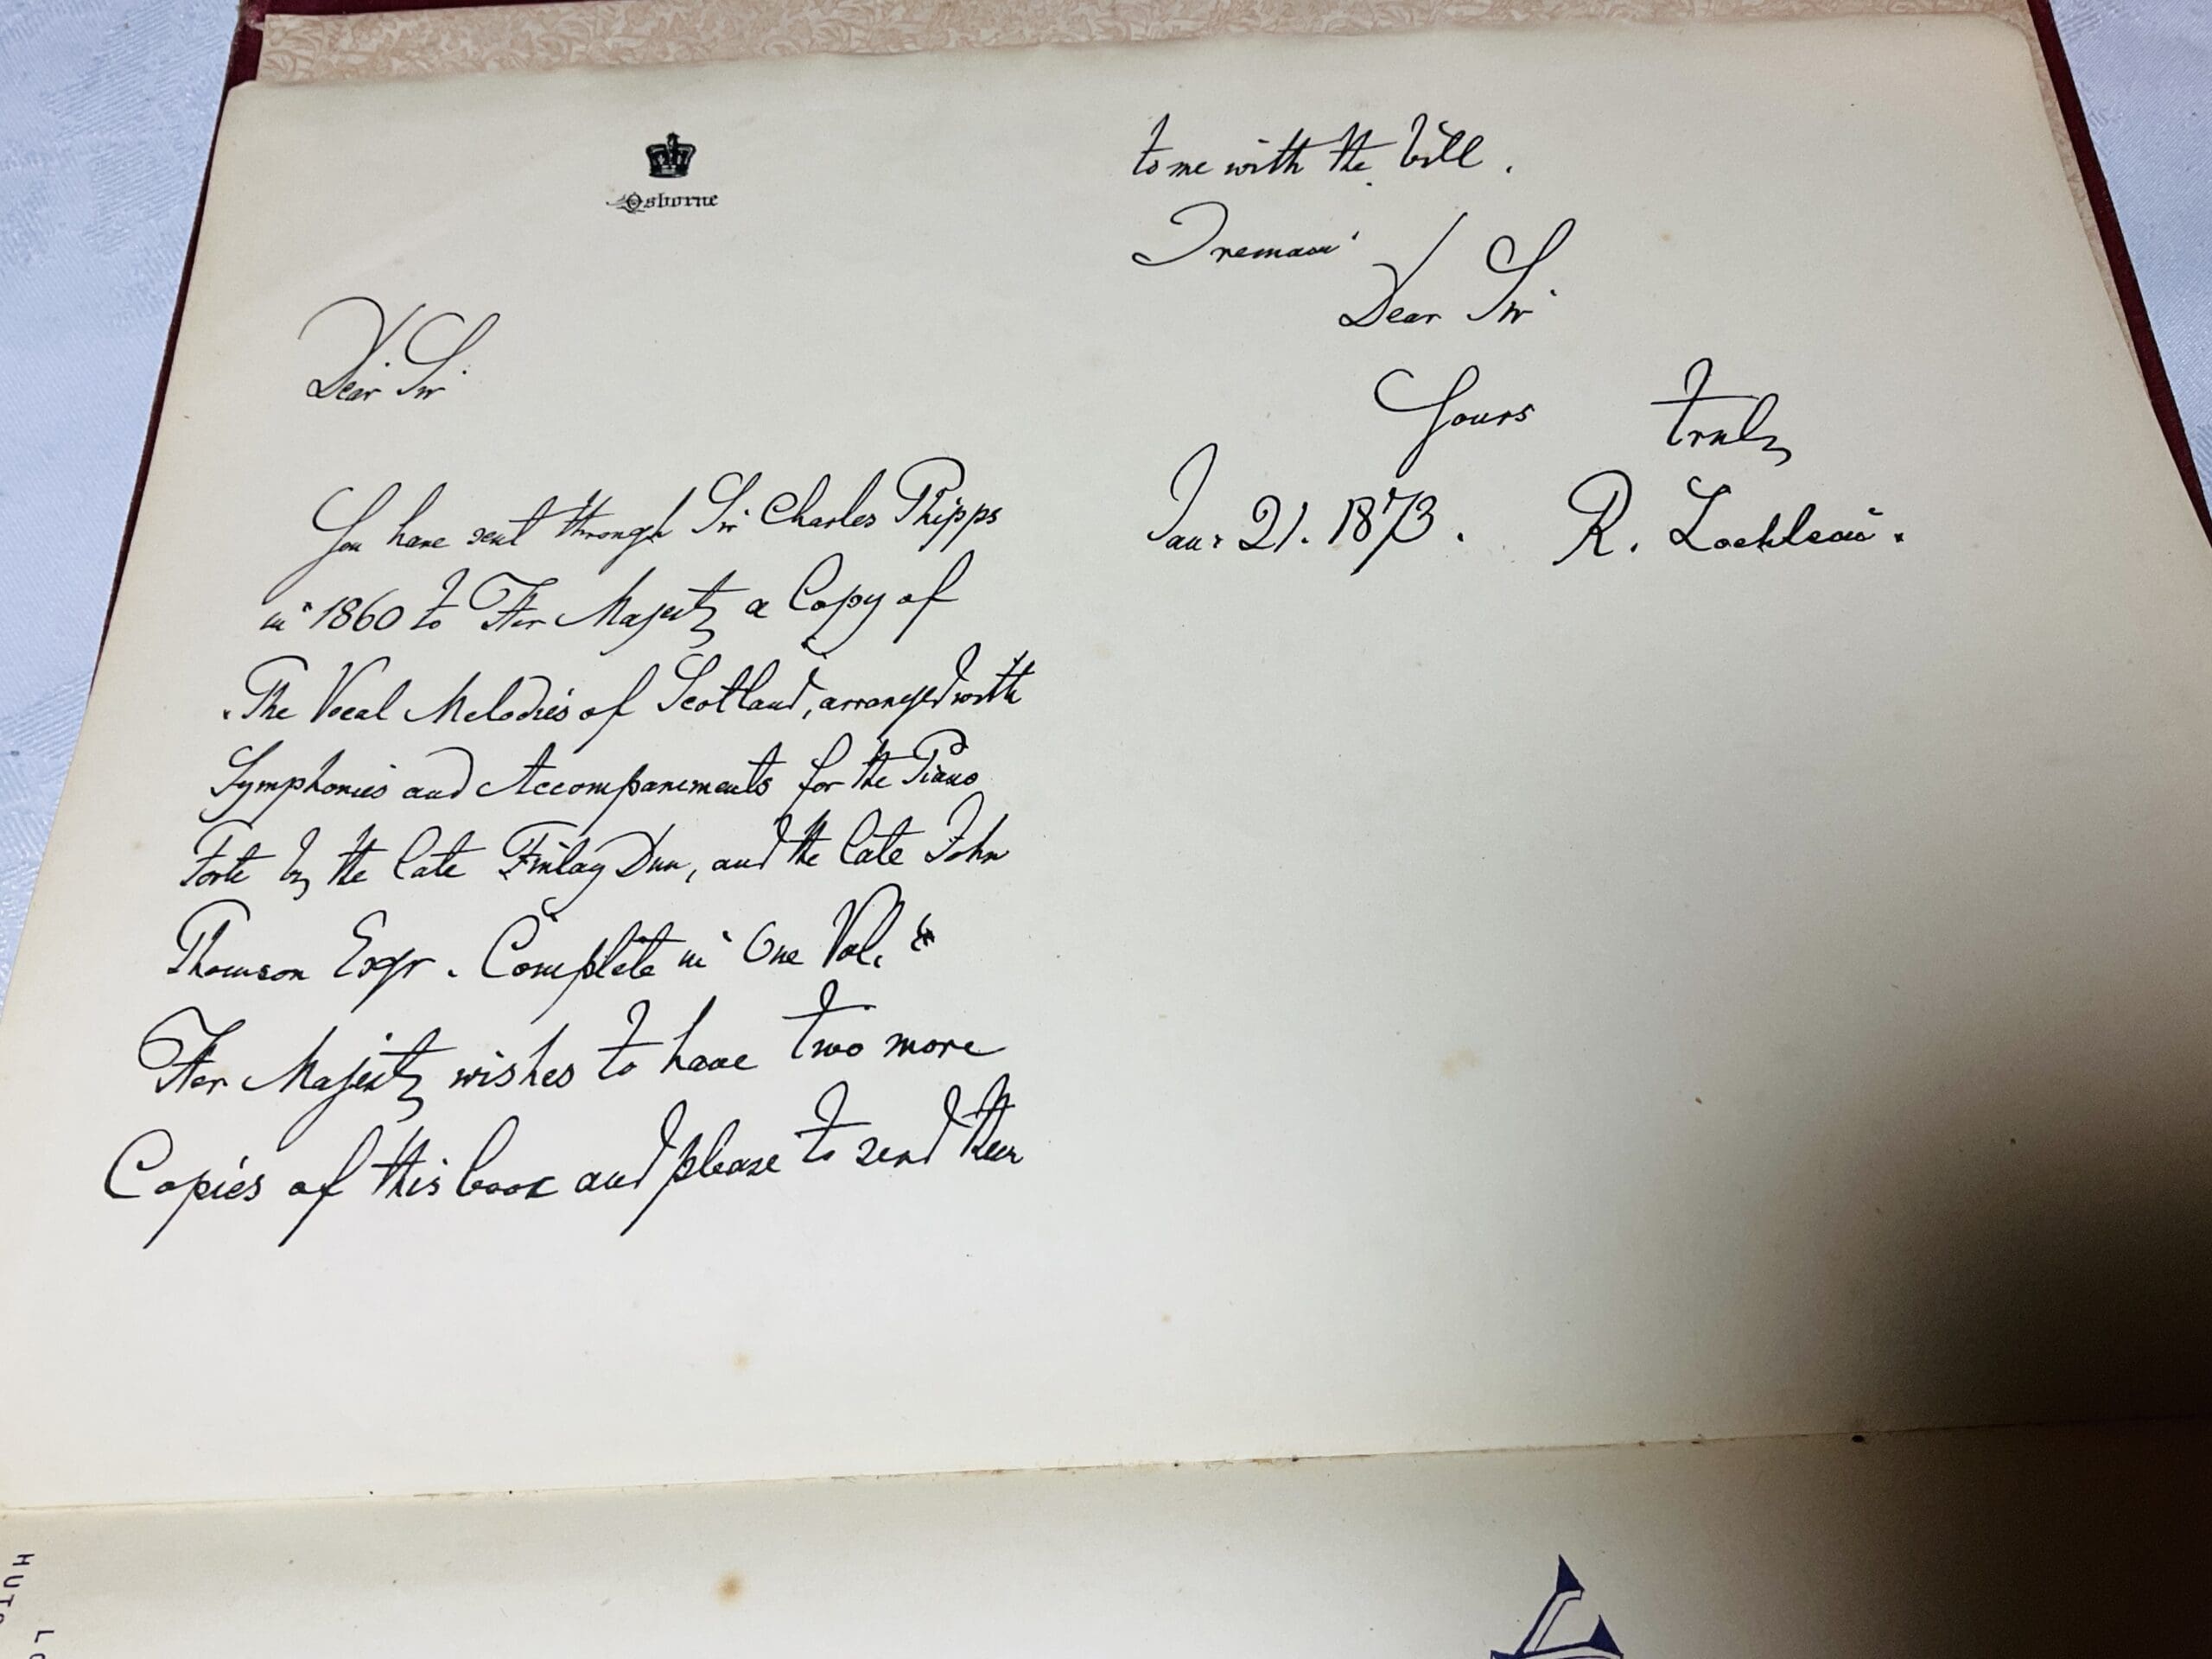 Osborne
Dear Sir
You have sent through Sir Charles Phipps
in 1860 to Her Majesty a Copy of
"The Vocal Melodies of Scotland, arranged with
Symphonies and Accompanements for the Piano
Forte by the late Finlay Dun, and the late John
Thomson Esqr. Complete in One Vol."
Her Majesty wishes to have two more
Copies of this book and please to send them
to me with the bill.
I remain
Dear Sir
Yours truly
Jan: 21. 1873. R.